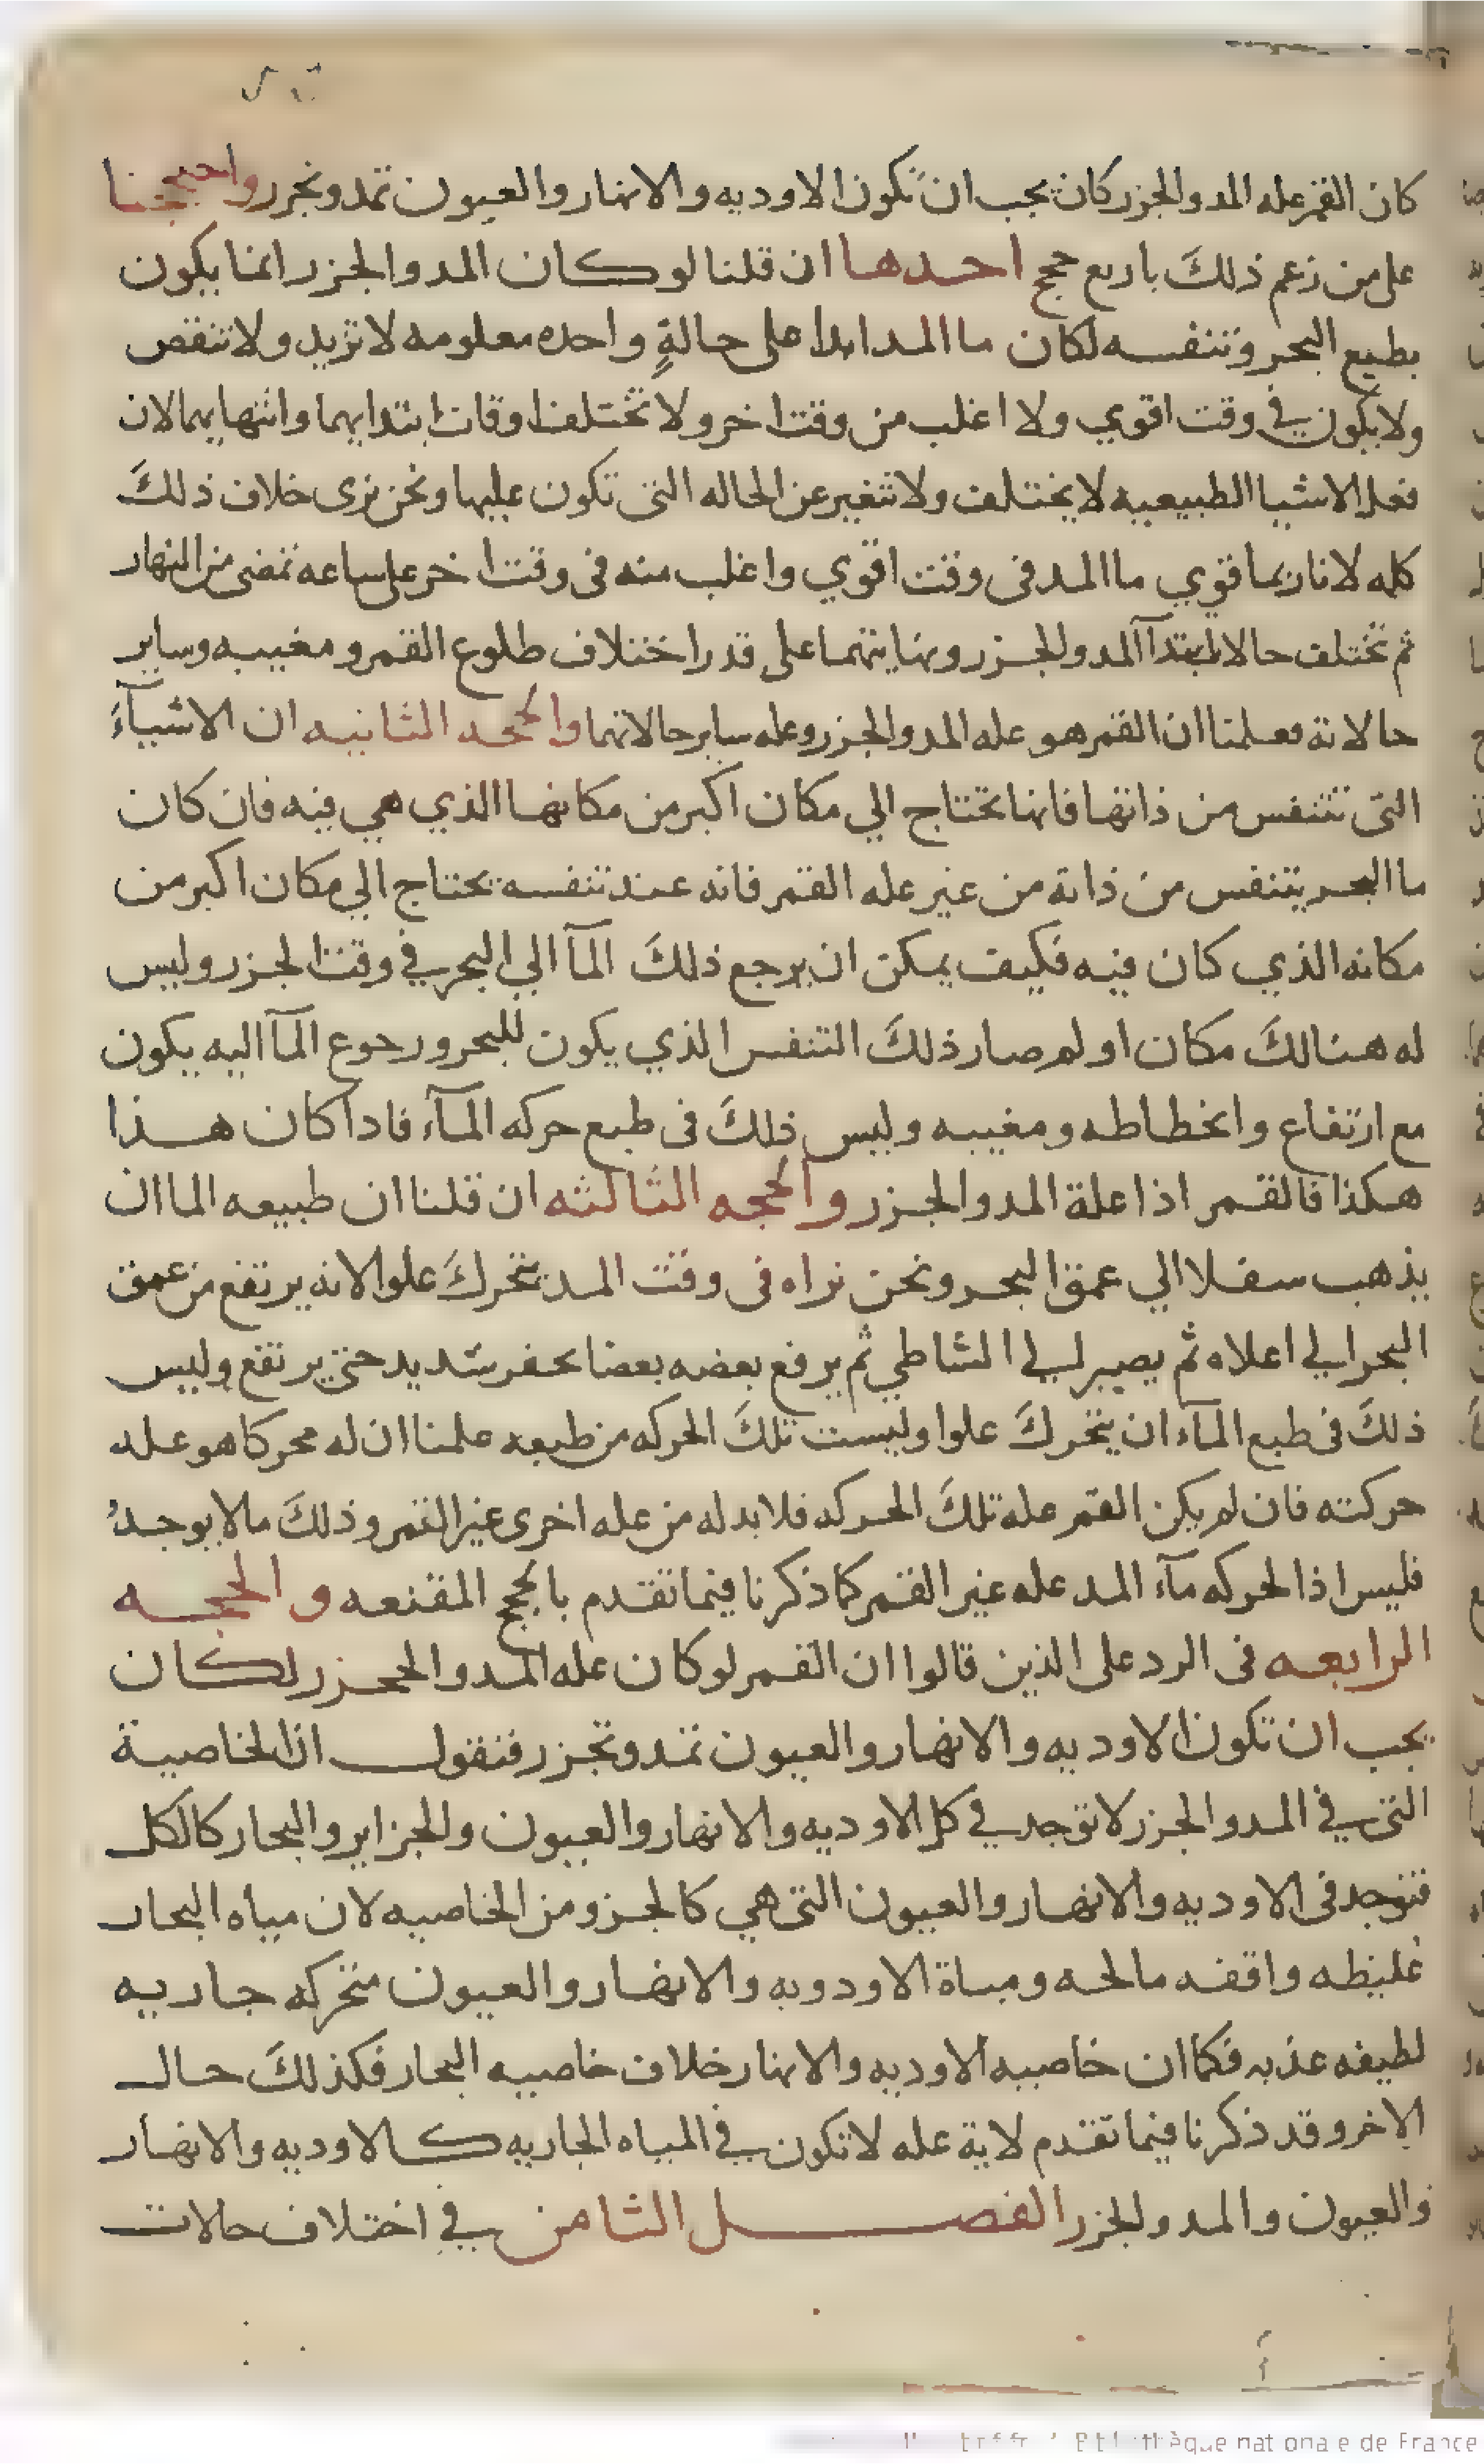 كان القمر عله المد والجزر كان يجب ان تكون الاوديه والانهار والعيون تمد وتجزر واحتججنا
على من زعم ذلك باربع حجج احدها ان قلنا لو كان المد والجزر انما يكون
بطبع البحر وتنفسه لكان ما المد ابدا على حالة واحده معلومه لا تزيد ولا تنقص
ولا يكون في وقت اقوي ولا اغلب من وقت اخر ولا تختلف اوقات ابتدايهما وانتهايهما لان
فعل الاشيا الطبيعيه لا يختلف ولا تتغير عن الحاله التى تكون عليها ونحن نرى خلاف ذلك
كله لانا ربما قوي ما المد فى وقت اقوي واغلب منه فى وقت اخر على ساعه تمضى من النهار
ثم تختلف حالات ابتدآ المد والجزر ونهايتهما على قدر اختلاف طلوع القمر ومغيبه وساير
حالاته فعلمنا ان القمر هو عله المد والجزر وعله ساير حالاتهما والحجه الثانيه ان الاشيآء
التى تتنفس من ذاتها فانها تحتاج الي مكان اكبر من مكانها الذي هي فيه فان كان
ما البحر يتنفس من ذاته من غير عله القمر فانه عند تنفسه يحتاج الي مكان اكبر من
مكانه الذي كان فيه فكيف يمكن ان يرجع ذلك المآ الي البحر في وقت الجزر وليس
له هنالك مكان او لم صار ذلك التنفس الذي يكون للبحر ورجوع المآ اليه يكون
مع ارتفاع وانحطاطه ومغيبه وليس ذلك فى طبع حركه المآء فاذا كان هذا
هكذا فالقمر اذا علة المد والجزر والحجه الثالثه ان قلنا ان طبيعه الما ان
يذهب سفلا الي عمق البحر ونحن نراه فى وقت المد يتحرك علوا لانه يرتفع من عمق
البحر الي اعلاه ثم يصير الي الشاطي ثم يرفع بعضه بعضا بحفر شديد حتى يرتفع وليس
ذلك فى طبع المآء ان يتحرك علوا وليست تلك الحركه من طبعه علمنا ان له محركا هو عله
حركته فان لم يكن القمر عله تلك الحركه فلا بد له من عله اخرى غير القمر وذلك ما لا يوجد
فليس اذا لحركه مآء المد عله غير القمر كما ذكرنا فيما تقدم بالحجج المقنعه والحجه
الرابعه فى الرد على الذين قالوا ان القمر لو كان عله المد والجزر لكان
يجب ان تكون الاوديه والانهار والعيون تمد وتجزر فنقول ان الخاصية
التى في المد والجزر لا توجد في كل الاوديه والانهار والعيون والجزاير والبحار كالكل
فتوجد فى الاوديه والانهار والعيون التى هي كالجزو من الخاصيه لان مياه البحار
غليظه واقفه مالحه ومياة الاودويه والانهار والعيون متحركه جاريه
لطيفه عذبه فكما ان خاصيه الاوديه والانهار خلاف خاصيه البحار فكذلك حال
الاخر وقد ذكرنا فيما تقدم لاية عله لا تكون في المياه الجاريه كالاوديه والانهار
والعيون والمد والجزر الفصل الثامن في اختلاف حالات